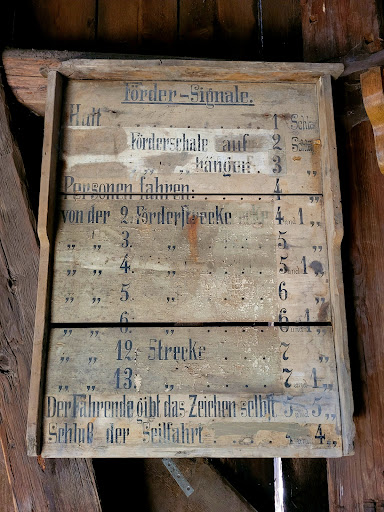 Förder-Signale.
Halt 1 Schlag
Förderschale auf 2 Schläge
„ „ hängen. 3 „
Personen fahren. 4 „
von der 2. Förderstrecke 4 und 1 „
„ „ 3. „ 5 „
„ „ 4. „ 5 und 1 „
„ „ 5. „ 6 „
„ „ 6. „ 6 und 1 „
„ „ 12. Strecke 7 „
„ „ 13. „ 7 und 1 „
Der Fahrende gibt das Zeichen selbst 5 und 5 „
Schluß der Seilfahrt 4 „